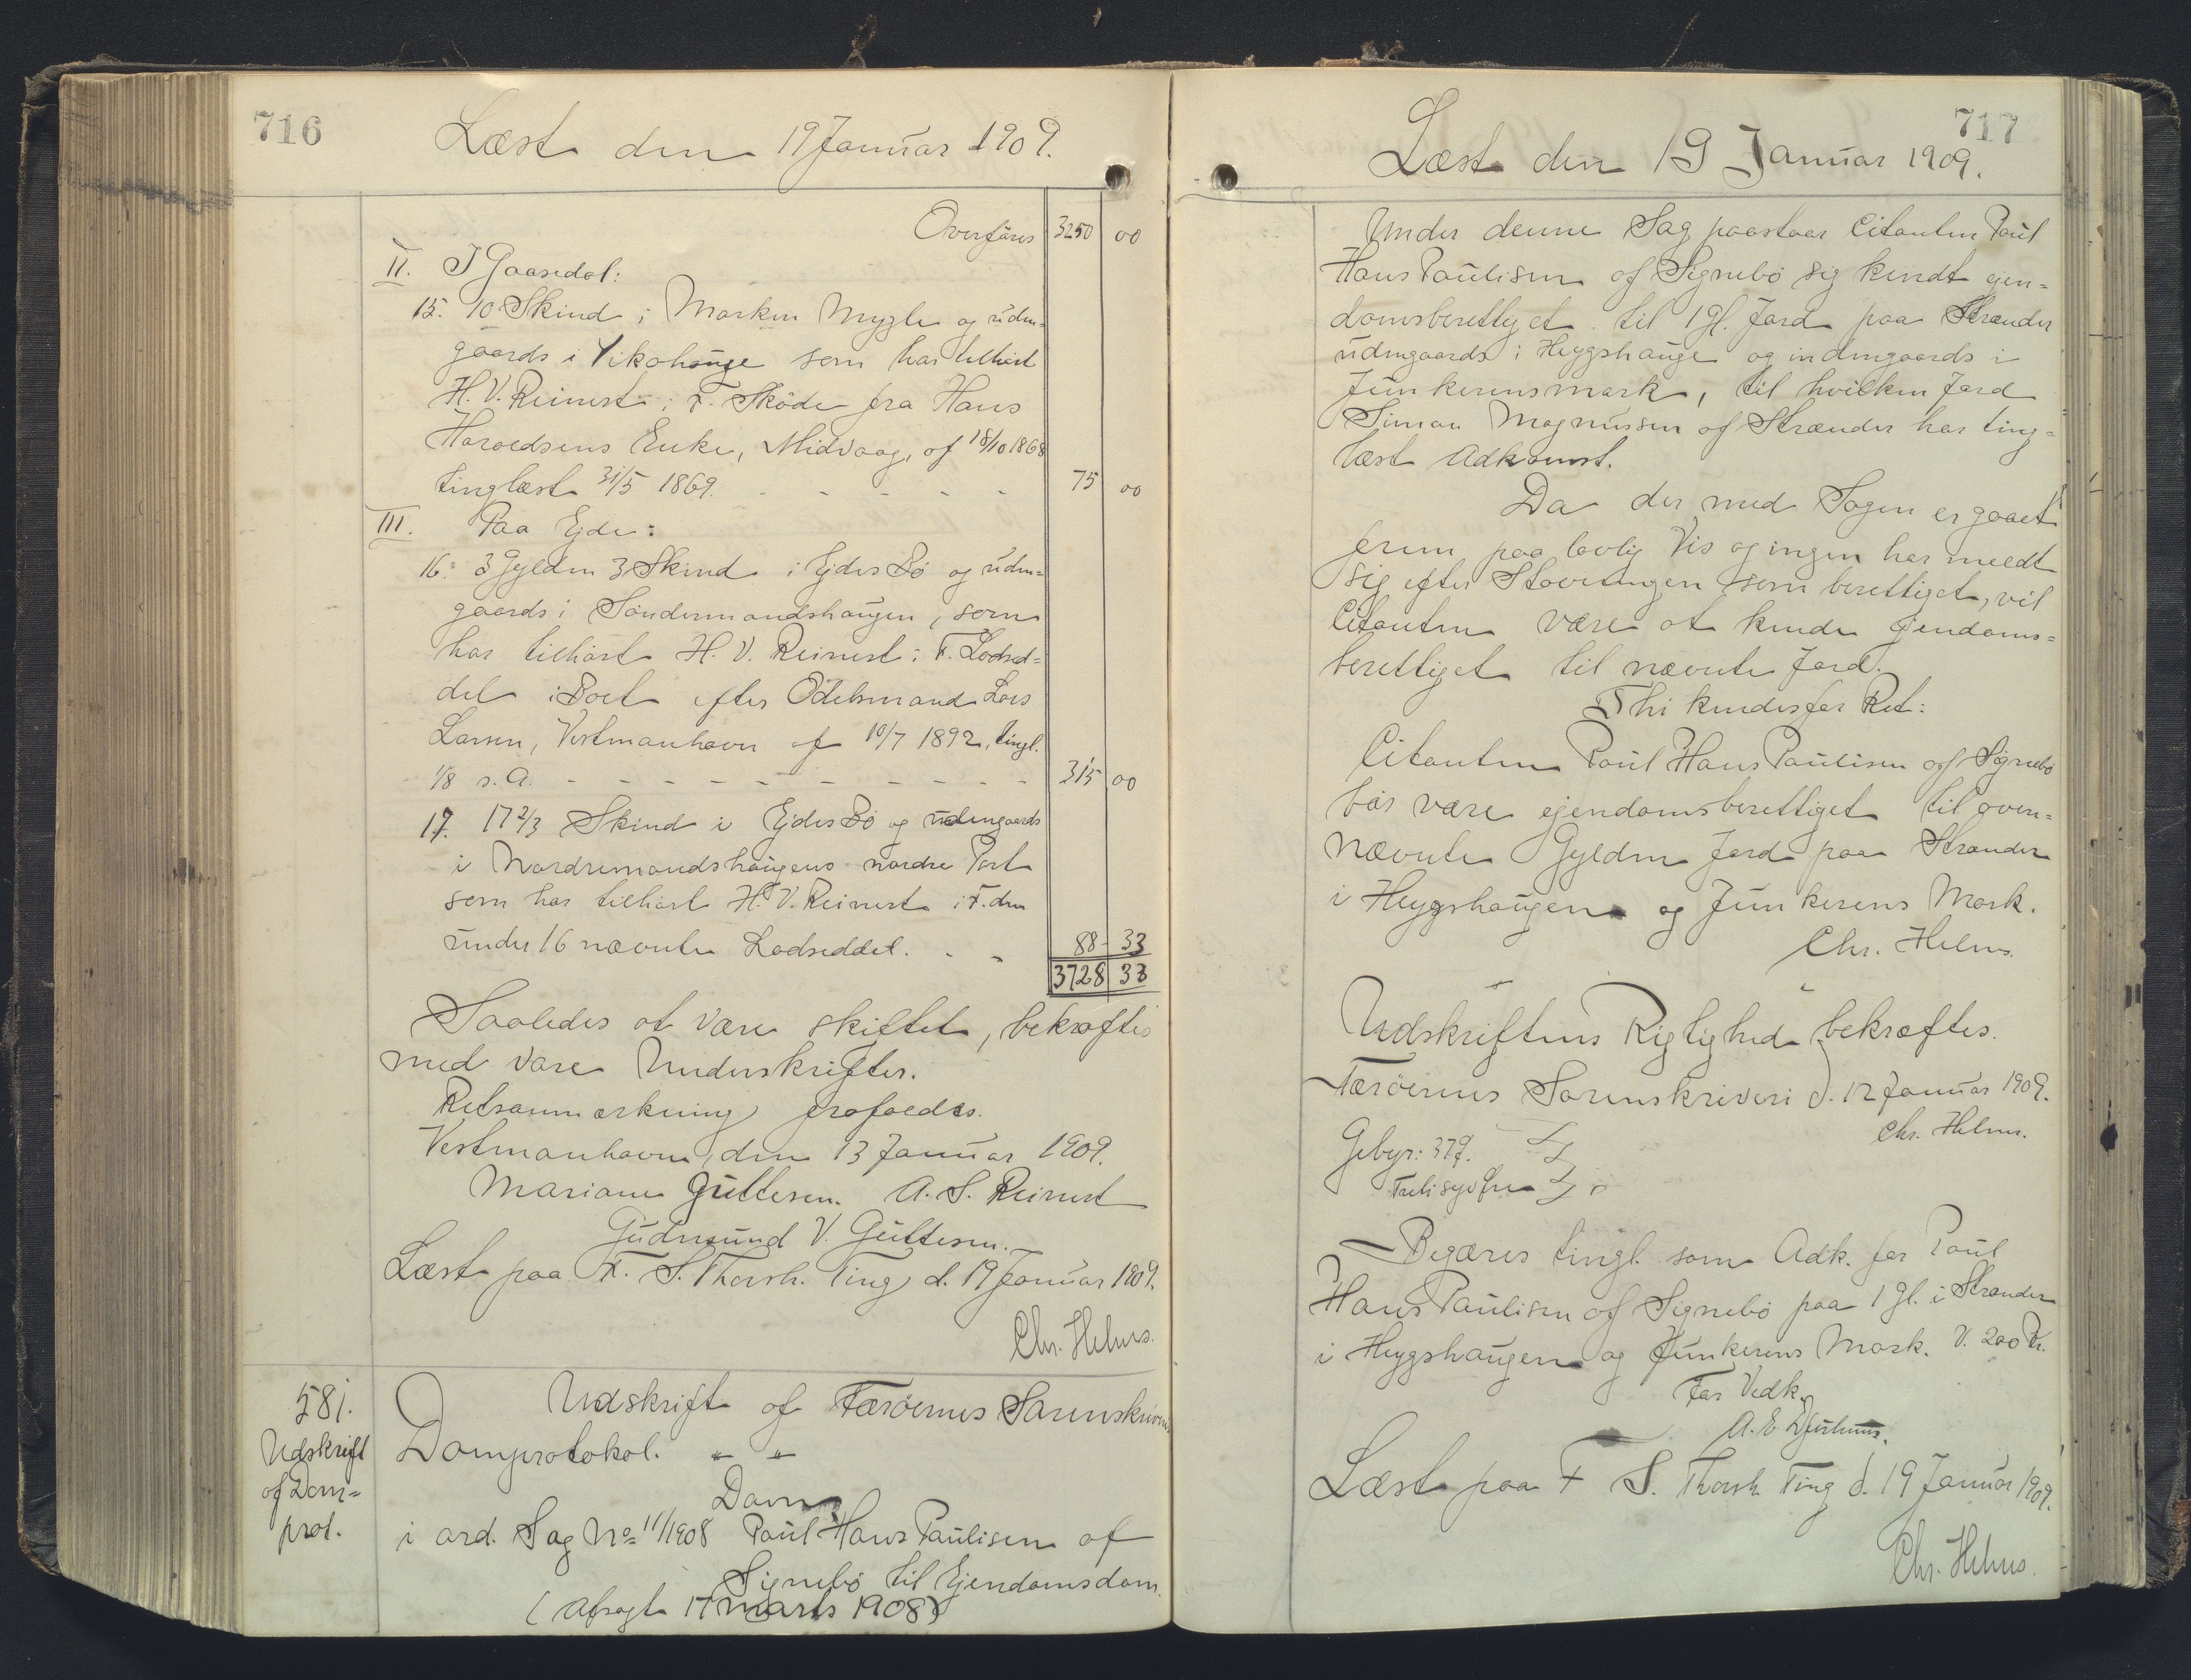 716
Læst den 19 Januar 1909.
Overføres 3250 00
II. I Gaasedal:
15. 10 Skind i Marken Mygle og uden-
gaards i Vikahauge som har tilhørt
H. V. Reinert i F. Skøde fra Hans
Haroldsens Enke, Midvaag, af 18/10 1868
tinglæst 31/5 1869. - - - - - 75 00
III. Paa Ejde:
16. 3 Gylden 3 Skind i Ejdes Bø og uden-
gaards i Søndermandshaugen, som
har tilhørt H. V. Reinert i F. Lodsed-
del i Boet efter Odelsmand Lars
Larsen, Vestmanhavn af 10/7 1892, tingl.
1/8 s. A. - - - - - - - - - - 315 00
17. 17 2/3 Skind i Ejdes Bø og udengaards
i Nordremandshaugens nordre Part
som har tilhørt H. V. Reinert i F. den
under 16 nævnte Lodseddel. - - 88 33
3728 33
Saaledes at være skiftet, bekræftes
med vore Underskrifter.
Retsanmærkning frafaldes.
Vestmanhavn, den 13 Januar 1909.
Mariane Guttesen. A. S. Reinert
Gudmund V. Guttesen.
Læst paa F. S. Thorsh. Ting d. 19 Januar 1909.
Chr. Helms.
581.
Udskrift
af Dom-
prot.
Udskrift af Færøernes Sorenskriveris
Domprotokol. " "
Dom
i ord. Sag No 11/1908 Poul Hans Paulisen af
Signebø til Ejendomsdom.
(Afsagt 17 Marts 1908)
717
Læst den 19 Januar 1909.
Under denne Sag paastaar Citanten Poul
Hans Paulisen af Signebø sig kendt ejen-
domsberettiget til 1 Gl. Jord paa Strænder
udengaards i Heygshauge og indengaards i
Junkerensmark, til hvilken Jord
Simon Magnussen af Strænder har ting-
læst Adkomst.
Da der med Sagen er gaaet
frem paa lovlig Vis og ingen har meldt
sig efter Stævningen som berettiget, vil
Citanten være at kende ejendoms-
berettiget til nævnte Jord.
Thi kendes for Ret:
Citanten Poul Hans Paulisen af Signebø
bør være ejendomsberettiget til oven-
nævnte Gylden Jord paa Strænder
i Heygshaugen og Junkerens Mark.
Chr. Helms.
Udskriftens Rigtighed bekræftes.
Færøernes Sorenskriveri d. 12 Januar 1909.
Chr. Helms.
Gebyr: 37
Begæres tingl. som Adk. for Poul
Hans Paulisen af Signebø paa 1 Gl. i Strænder
i Heygshaugen og Junkerens Mark. V. 200 Kr.
For Vedk.
Læst paa F S. Thorsh. Ting d. 19 Januar 1909.
Chr. Helms.